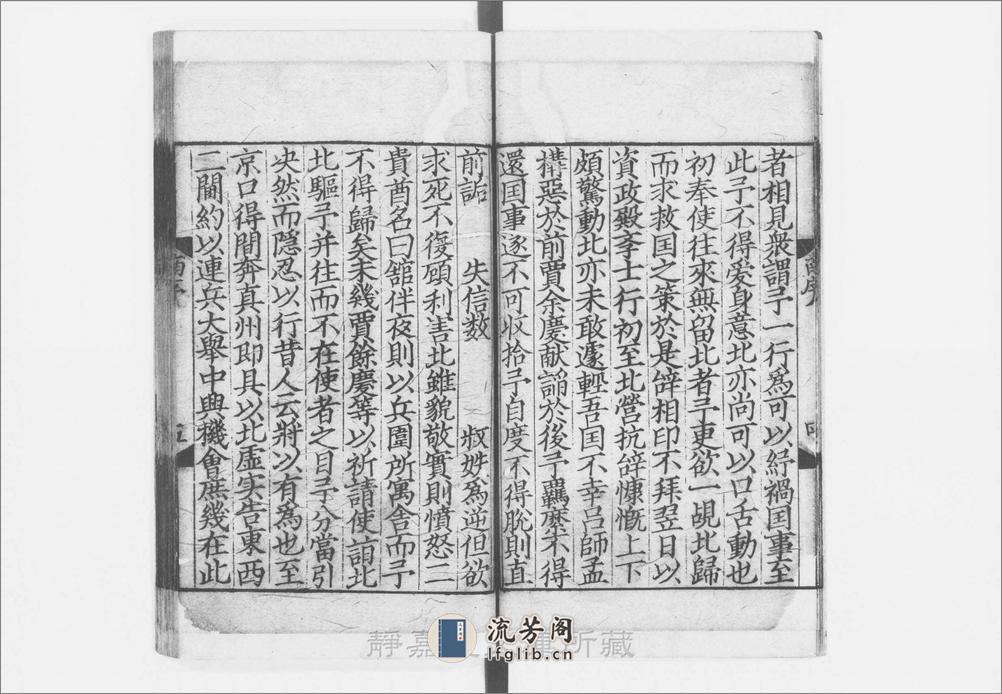 者相見衆謂予一行爲可以紓禍国事至
此予不得爱身意北亦尚可以口舌動也
初奉使往來無留北者予更欲一覘北歸
而求救国之策於是辝相印不拜翌日以
資政殿李士行初至北營抗辝慷慨上下
頗驚動北亦未敢遽輕吾国不幸吕師孟
構惡於前賈余慶献謟於後予羈縻不得
還国事遂不可収拾予自度不得脱則直
前詬 失信数 叔姪爲逆但欲
求死不復顾利害北雖貌敬實則憤怒二
貴酋名曰舘伴夜則以兵圍所寓舎而予
不得歸矣未幾賈餘慶等以祈請使詣北
北驅予并往而不在使者之目予分當引
决然而隱忍以行昔人云將以有爲也至
京口得間奔真州即具以北虚实告東西
二閫約以連兵大舉中興機會庶幾在此
靜嘉 所藏
流芳阁
lfglib.cn